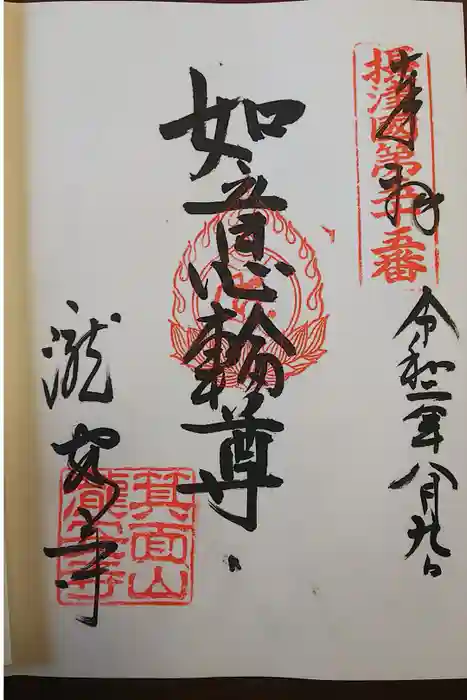 奉拝
摂津國第三十五番
令和二年八月九日
如意輪尊
瀧安寺
箕面山
瀧安寺